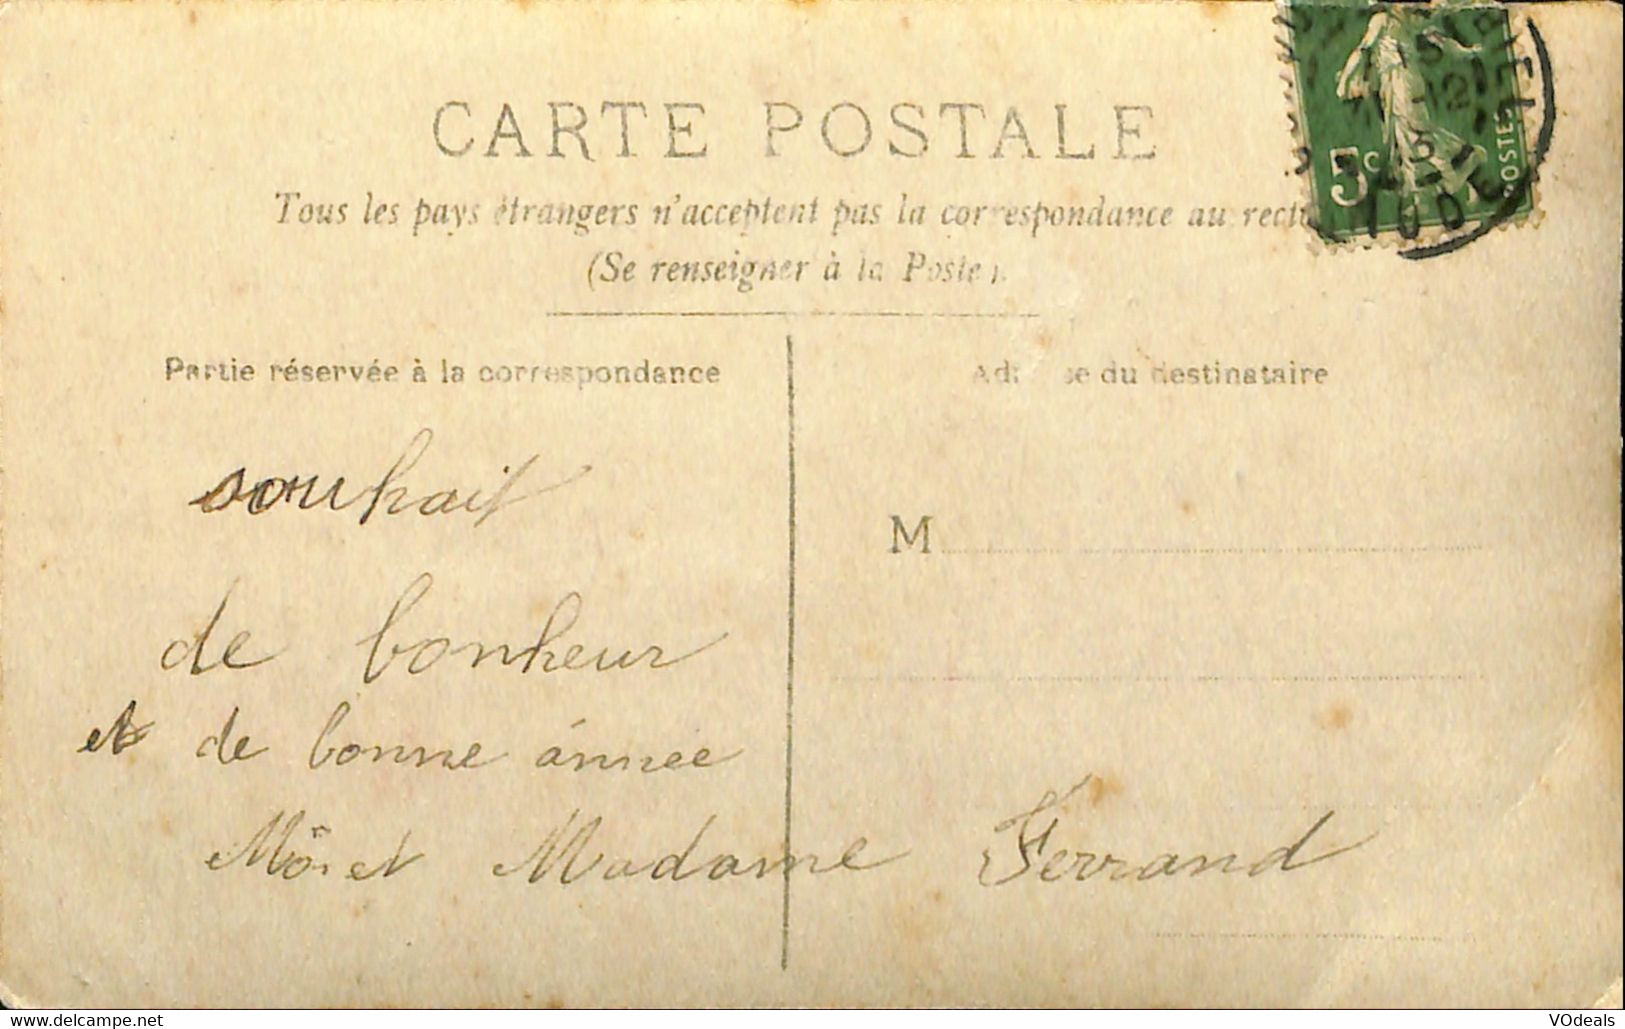 CARTE POSTALE
Tous les pays étrangers n'acceptent pas la correspondance au recto
(Se renseigner à la Poste).
Partie réservée à la correspondance
Adresse du destinataire
5c
POSTES
souhait
de bonheur
et de bonne année
M
Mr et Madame Ferrand
www.delcampe.net
VOdeals